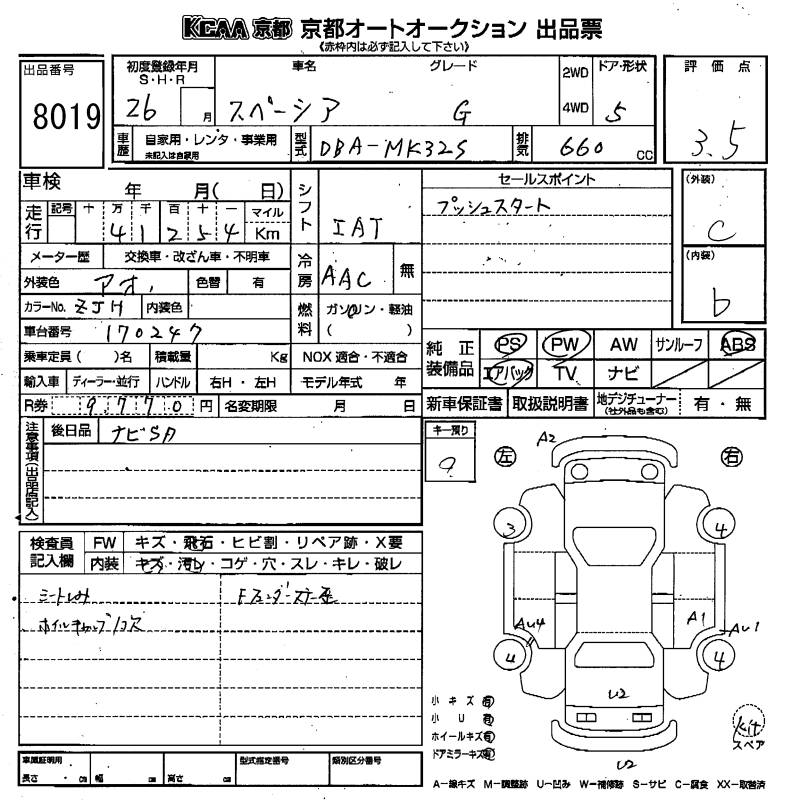 KCAA 京都 京都オートオークション 出品票
《赤枠内は必ず記入して下さい》
出品番号
8019
初度登録年月
S・H・R
26 月
車名 グレード
スペーシア G
2WD
4WD
ドア・形状
5
評価点
3.5
車歴 自家用・レンタ・事業用
未記入は自家用
型式 DBA-MK32S
排気 660 cc
車検 年 月( 日)
シフト IAT
セールスポイント
プッシュスタート
(外装)
C
(内装)
b
走行 記号 十 万 千 百 十 一 マイル
4 1 2 5 4 Km
メーター歴 交換車・改ざん車・不明車
冷房 AAC 無
外装色 アオ 色替 有
カラーNo. ZJH 内装色
燃料 ガソリン・軽油
( )
車台番号 170247
乗車定員( )名 積載量 Kg NOX 適合・不適合
輸入車 ディーラー・並行 ハンドル 右H・左H モデル年式 年
R券 9770 円 名変期限 月 日
純正装備品 PS PW AW サンルーフ ABS
エアバッグ TV ナビ
新車保証書 取扱説明書 地デジチューナー
(社外品も含む) 有・無
注意事項(出品店記入)
後日品 ナビSD
キー預り
9
検査員記入欄 FW キズ・飛石・ヒビ割・リペア跡・X要
内装 キズ・汚レ・コゲ・穴・スレ・キレ・破レ
シートしみ
ホイルキャップ1コ欠
左 右
A2
3 4
AU4 A1
AU1
4 4
U2
U2
小キズ 有
小U 有
ホイールキズ 有
ドアミラーキズ 有
kit
スペア
車庫証明用
長さ ・ cm 幅 cm 高さ cm
型式指定番号 類別区分番号
A―線キズ M―調整跡 U―凹み W―補修跡 S―サビ C―腐食 XX―取替済